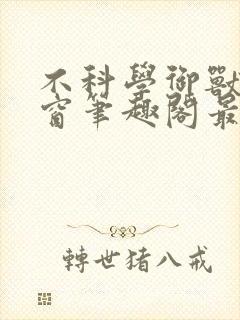 不科學御獸
窗筆趣閣最
轉世豬八戒